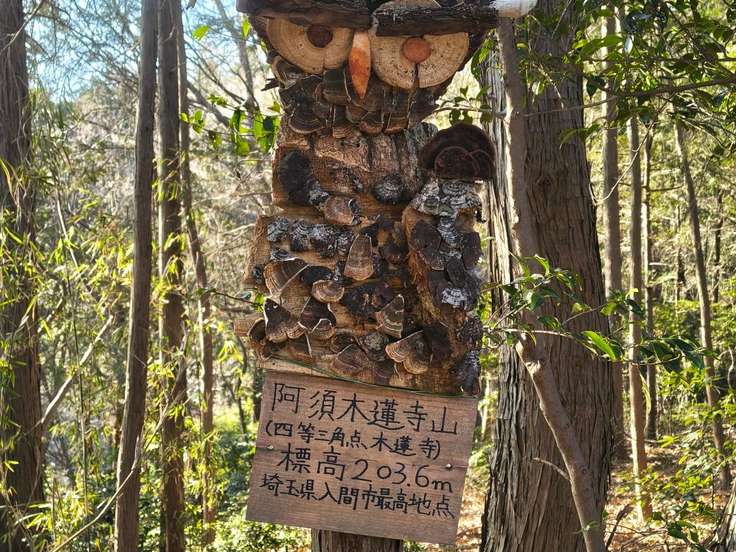 阿須木蓮寺山
(四等三角点、木蓮寺)
標高203.6m
埼玉県入間市最高地点